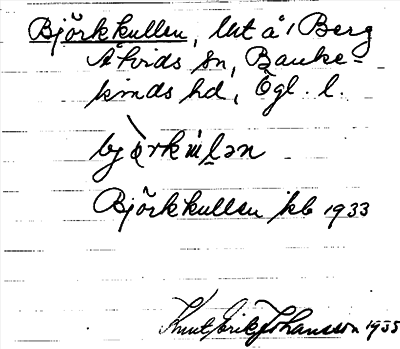 Björkkullen, lht å 1 Berg
Åtvids sn, Banke-
kinds hd, Ögl. l.
Björkkullen jkb 1933
Knut Erik Johansson 1935